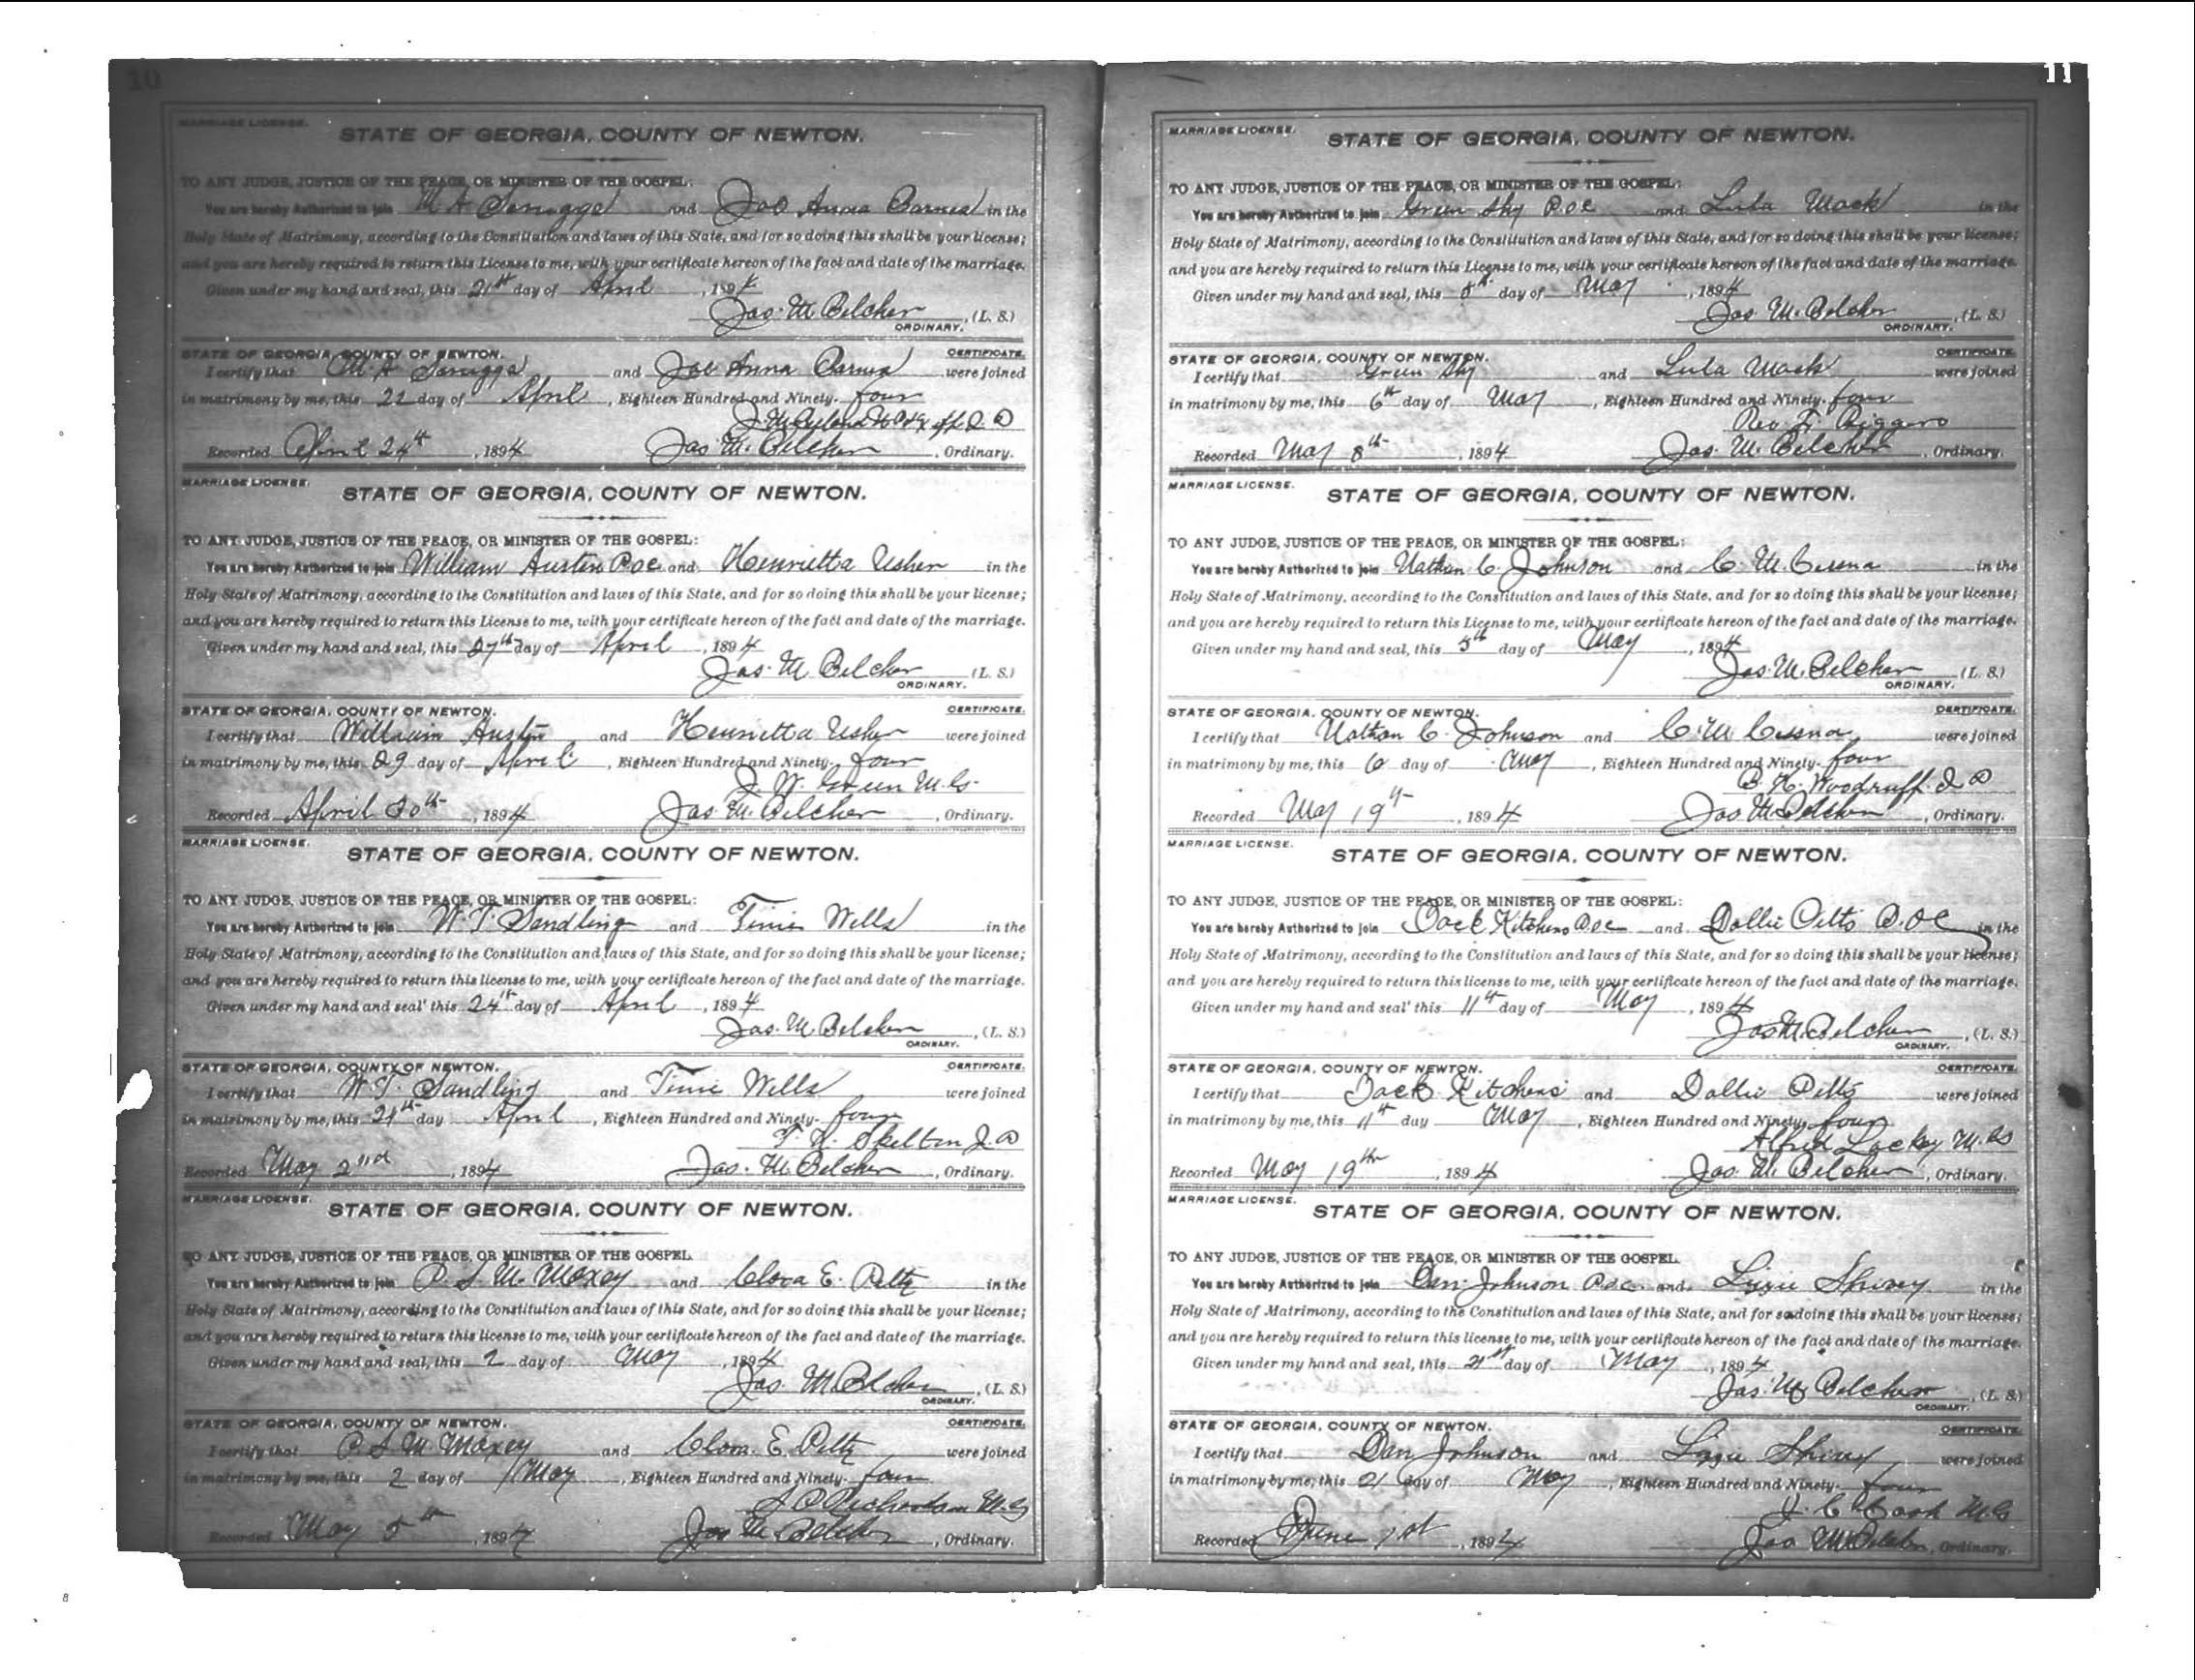 10
MARRIAGE LICENSE.
STATE OF GEORGIA, COUNTY OF NEWTON.
TO ANY JUDGE, JUSTICE OF THE PEACE, OR MINISTER OF THE GOSPEL:
You are hereby Authorized to join M A and Joe Anna in the
Holy State of Matrimony, according to the Constitution and laws of this State, and for so doing this shall be your license;
and you are hereby required to return this License to me, with your certificate hereon of the fact and date of the marriage.
Given under my hand and seal, this 21st day of April, 1894
Jas. M Belcher, (L. S.)
ORDINARY.
STATE OF GEORGIA, COUNTY OF NEWTON. CERTIFICATE.
I certify that M. A and Joe Anna were joined
in matrimony by me, this 22 day of April, Eighteen Hundred and Ninety-four
J. P.
Recorded April 24th, 1894 Jas M. Belcher, Ordinary.
MARRIAGE LICENSE.
STATE OF GEORGIA, COUNTY OF NEWTON.
TO ANY JUDGE, JUSTICE OF THE PEACE, OR MINISTER OF THE GOSPEL:
You are hereby Authorized to join William Austin Poc and Henrietta Usher in the
Holy State of Matrimony, according to the Constitution and laws of this State, and for so doing this shall be your license;
and you are hereby required to return this License to me, with your certificate hereon of the fact and date of the marriage.
Given under my hand and seal, this 27th day of April, 1894
Jas. M Belcher (L. S.)
ORDINARY.
STATE OF GEORGIA, COUNTY OF NEWTON. CERTIFICATE.
I certify that William Austin and Henrietta Usher were joined
in matrimony by me, this 29 day of April, Eighteen Hundred and Ninety-four
J. W. Green M. G.
Recorded April 30th, 1894 Jas. M. Belcher, Ordinary.
MARRIAGE LICENSE.
STATE OF GEORGIA, COUNTY OF NEWTON.
TO ANY JUDGE, JUSTICE OF THE PEACE, OR MINISTER OF THE GOSPEL:
You are hereby Authorized to join W. T. Sandling and Tinie Wells in the
Holy State of Matrimony, according to the Constitution and laws of this State, and for so doing this shall be your license;
and you are hereby required to return this license to me, with your certificate hereon of the fact and date of the marriage.
Given under my hand and seal' this 24th day of April, 1894
Jas. M Belcher, (L. S.)
ORDINARY.
STATE OF GEORGIA, COUNTY OF NEWTON. CERTIFICATE.
I certify that W. T. Sandling and Tinie Wells were joined
in matrimony by me, this 24th day April, Eighteen Hundred and Ninety-four
Skelton J. P
Recorded May 2nd, 1894 Jas. M. Belcher, Ordinary.
MARRIAGE LICENSE.
STATE OF GEORGIA, COUNTY OF NEWTON.
TO ANY JUDGE, JUSTICE OF THE PEACE, OR MINISTER OF THE GOSPEL
You are hereby Authorized to join P. S. M. Maxey and Clora E. Pitts in the
Holy State of Matrimony, according to the Constitution and laws of this State, and for so doing this shall be your license;
and you are hereby required to return this license to me, with your certificate hereon of the fact and date of the marriage.
Given under my hand and seal, this 2 day of May, 1894
Jas M Belcher, (L. S.)
ORDINARY.
STATE OF GEORGIA, COUNTY OF NEWTON. CERTIFICATE.
I certify that P. S. M Maxey and Clora. E. Pitts were joined
in matrimony by me, this 2 day of May, Eighteen Hundred and Ninety-four
Richardson M. G
Recorded May 5th, 1894 Jas M. Belcher, Ordinary.
11
MARRIAGE LICENSE.
STATE OF GEORGIA, COUNTY OF NEWTON.
TO ANY JUDGE, JUSTICE OF THE PEACE, OR MINISTER OF THE GOSPEL:
You are hereby Authorized to join Green Shy Poc and Lula Mack in the
Holy State of Matrimony, according to the Constitution and laws of this State, and for so doing this shall be your license;
and you are hereby required to return this License to me, with your certificate hereon of the fact and date of the marriage.
Given under my hand and seal, this 5th day of May, 1894
Jas M. Belcher, (L. S.)
ORDINARY.
STATE OF GEORGIA, COUNTY OF NEWTON. CERTIFICATE.
I certify that Green Shy and Lula Mack were joined
in matrimony by me, this 6th day of May, Eighteen Hundred and Ninety-four
Rev. F. Biggers
Recorded May 8th, 1894 Jas. M. Belcher, Ordinary.
MARRIAGE LICENSE.
STATE OF GEORGIA, COUNTY OF NEWTON.
TO ANY JUDGE, JUSTICE OF THE PEACE, OR MINISTER OF THE GOSPEL:
You are hereby Authorized to join Nathan C. Johnson and C. M. Cessna in the
Holy State of Matrimony, according to the Constitution and laws of this State, and for so doing this shall be your license;
and you are hereby required to return this License to me, with your certificate hereon of the fact and date of the marriage.
Given under my hand and seal, this 5th day of May, 1894
Jas. M. Belcher (L. S.)
ORDINARY.
STATE OF GEORGIA, COUNTY OF NEWTON. CERTIFICATE.
I certify that Nathan C. Johnson and C. M Cessna were joined
in matrimony by me, this 6 day of May, Eighteen Hundred and Ninety-four
B. H. Woodruff. J P
Recorded May 19th, 1894 Jas M Belcher, Ordinary.
MARRIAGE LICENSE.
STATE OF GEORGIA, COUNTY OF NEWTON.
TO ANY JUDGE, JUSTICE OF THE PEACE, OR MINISTER OF THE GOSPEL:
You are hereby Authorized to join Jack Kitchens Poc and Dollie Pitts P. OC in the
Holy State of Matrimony, according to the Constitution and laws of this State, and for so doing this shall be your license;
and you are hereby required to return this license to me, with your certificate hereon of the fact and date of the marriage.
Given under my hand and seal' this 11th day of May, 1894
Jas M. Belcher, (L. S.)
ORDINARY.
STATE OF GEORGIA, COUNTY OF NEWTON. CERTIFICATE.
I certify that Jack Kitchens and Dollie Pitts were joined
in matrimony by me, this 11th day May, Eighteen Hundred and Ninety-four
Alfred Lackey M. G
Recorded May 19th, 1894 Jas. M. Belcher, Ordinary.
MARRIAGE LICENSE.
STATE OF GEORGIA, COUNTY OF NEWTON.
TO ANY JUDGE, JUSTICE OF THE PEACE, OR MINISTER OF THE GOSPEL
You are hereby Authorized to join Dan Johnson Poc and Lizzie Shivey in the
Holy State of Matrimony, according to the Constitution and laws of this State, and for so doing this shall be your license;
and you are hereby required to return this license to me, with your certificate hereon of the fact and date of the marriage.
Given under my hand and seal, this 21st day of May, 1894
Jas. M. Belcher, (L. S.)
ORDINARY.
STATE OF GEORGIA, COUNTY OF NEWTON. CERTIFICATE.
I certify that Dan Johnson and Lizzie Shivey were joined
in matrimony by me, this 21 day of May, Eighteen Hundred and Ninety-four
J. C. Cook M. G
Recorded June 1st, 1894 Jas M Belcher, Ordinary.